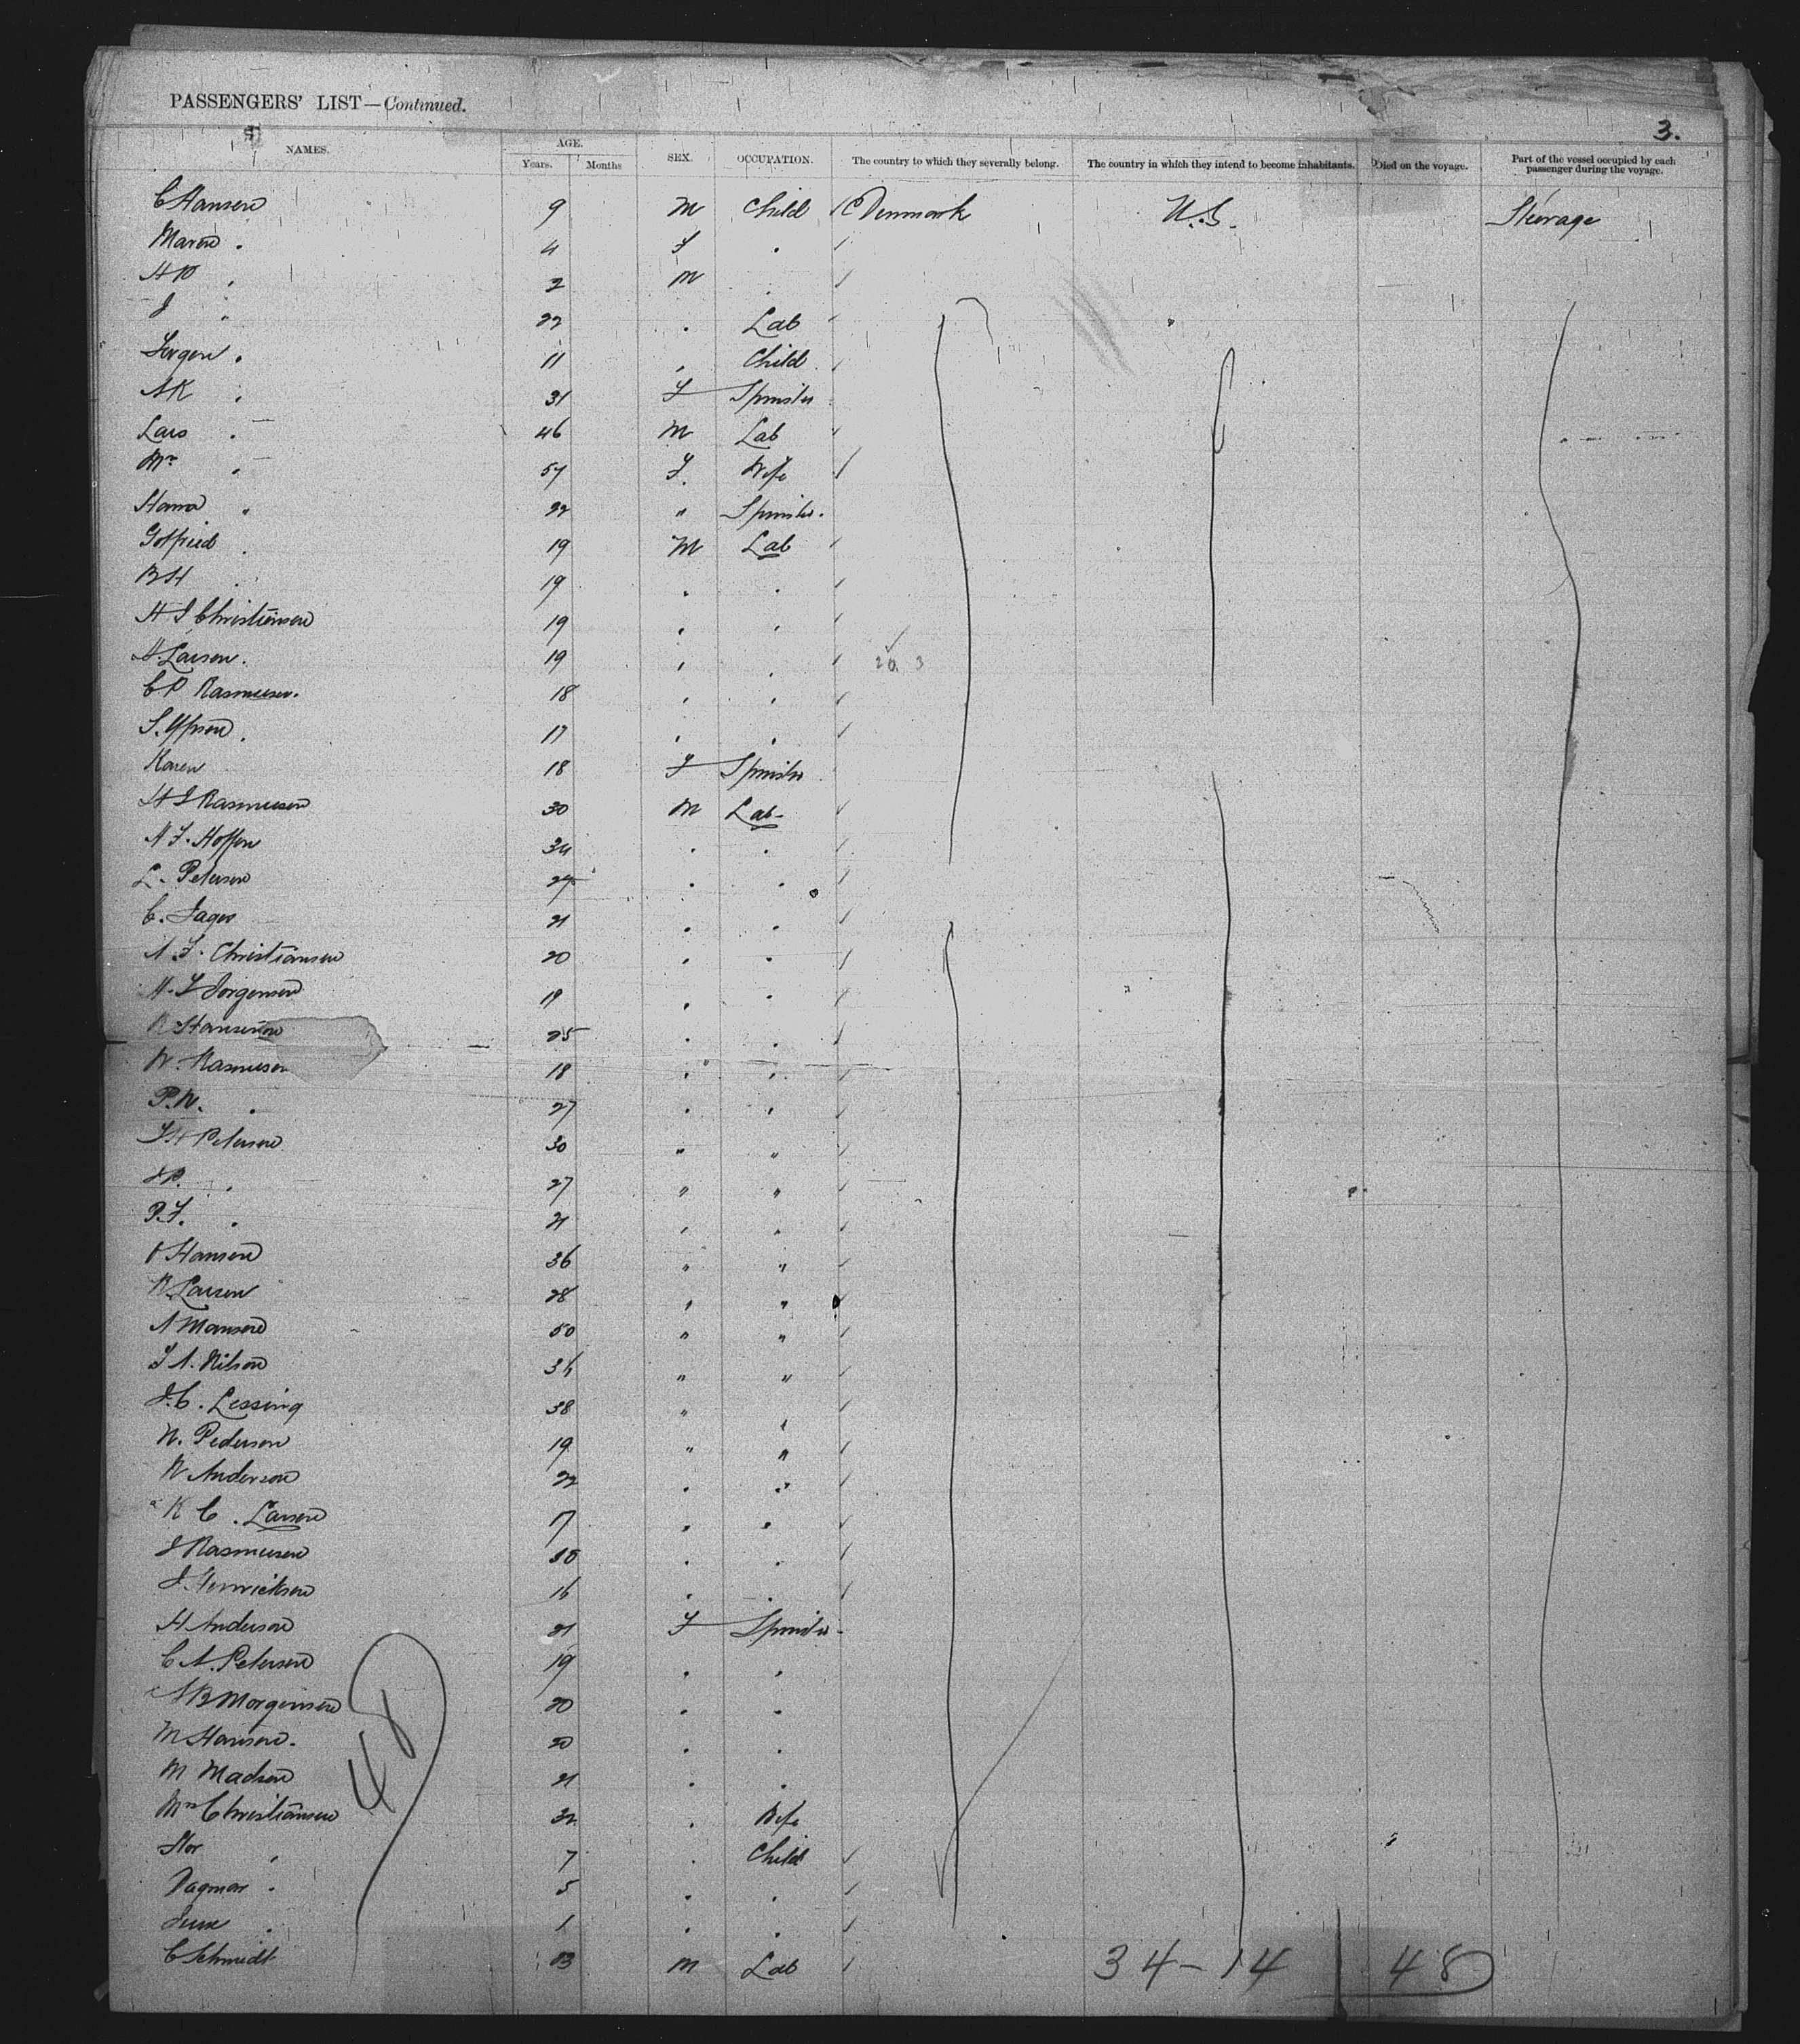 PASSENGERS' LIST—Continued.
3.
NAMES. AGE. Years. Months SEX. OCCUPATION. The country to which they severally belong. The country in which they intend to become inhabitants. Died on the voyage. Part of the vessel occupied by each passenger during the voyage.
C Hansen 9 M Child Denmark U.S. Steerage
Maren " 4 F "
HP " 2 M "
J " 22 " Lab
Jorgen " 11 " Child
AK " 31 F Spinster
Lars " 46 M Lab
Mrs " 57 F. Wife
Hanna " 22 " Spinster.
Gotfried " 19 M Lab
BH " 19 " "
H J Christiansen 19 " "
H. Larsen. 19 " " 20 3
C P Rasmussen. 18 " "
S. 17 " "
Karen 18 F Spinster
H J Rasmussen 30 M Lab
34 " "
L. Petersen " "
C. Jager 21 " "
A. F. Christiansen 20 " "
19 " "
25 " "
N. Rasmussen 18 " "
P.N. " 27 " "
Petersen 30 " "
J P. " 27 " "
P.F. " 21 " "
Hansen 36 " "
Larsen 28 " "
50 " "
Nilson " "
J.C. Lessing 38 " "
N. Pedersen 19 " "
N Anderson 22 " "
K C. Larsen 17 " "
J Rasmussen " "
J. Henricksen 16 " "
H Anderson 21 F Spinster
C A. Petersen 19 " "
20 " "
M Hansen. 20 " "
M Madsen 21 " "
Mrs Christiansen 32 " Wife
7 " Child
Dagmar " 5 " "
1 " "
C Schmidt M Lab
48
34-14 48